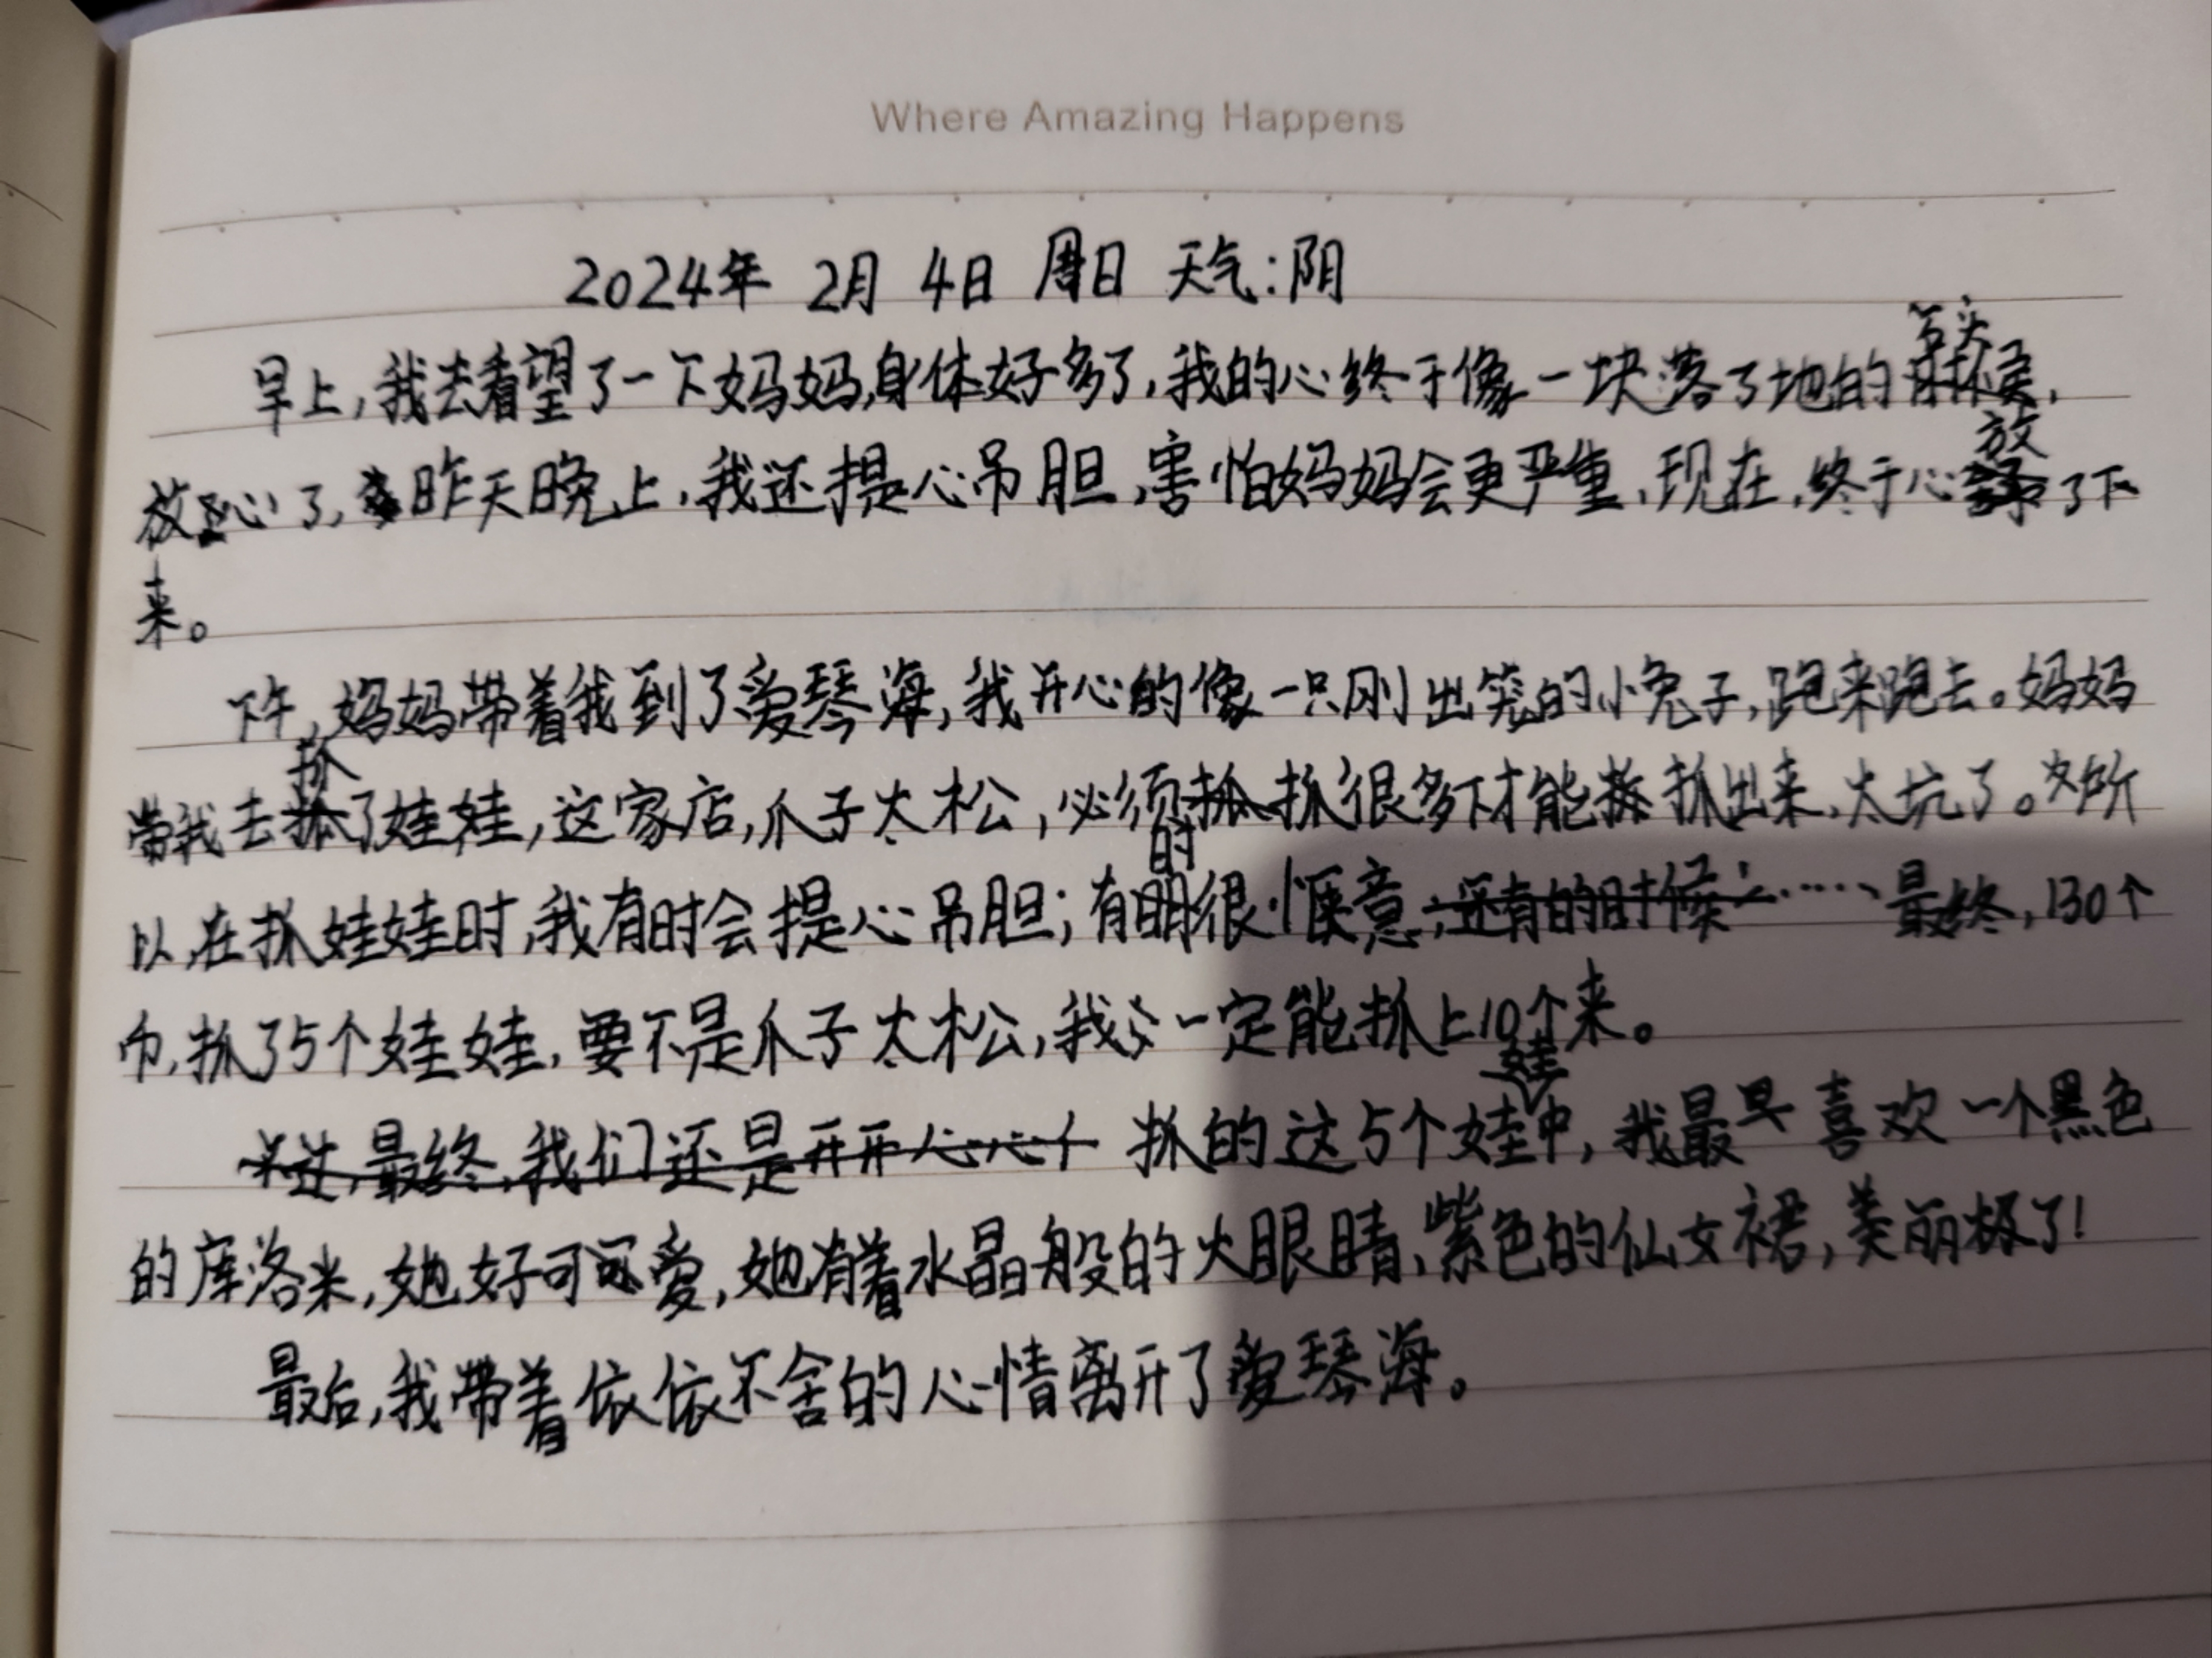 Where Amazing Happens
2024年 2月 4日 周日 天气:阴
早上,我去看望了一下妈妈,身体好多了,我的心终于像一块落了地的石头,
放心了,昨天晚上,我还提心吊胆,害怕妈妈会更严重,现在,终于心放了下
来。
下午,妈妈带着我到了爱琴海,我开心的像一只刚出笼的小兔子,跑来跑去。妈妈
带我去抓了娃娃,这家店,爪子太松,必须抓很多下才能抓出来,太坑了。所
以,在抓娃娃时,我有时会提心吊胆;有的很惬意……最终,130个
币,抓了5个娃娃,要不是爪子太松,我一定能抓上10个来。
抓的这5个娃娃中,我最早喜欢一个黑色
的库洛米,她好可爱,她有着水晶般的大眼睛,紫色的仙女裙,美丽极了!
最后,我带着依依不舍的心情离开了爱琴海。